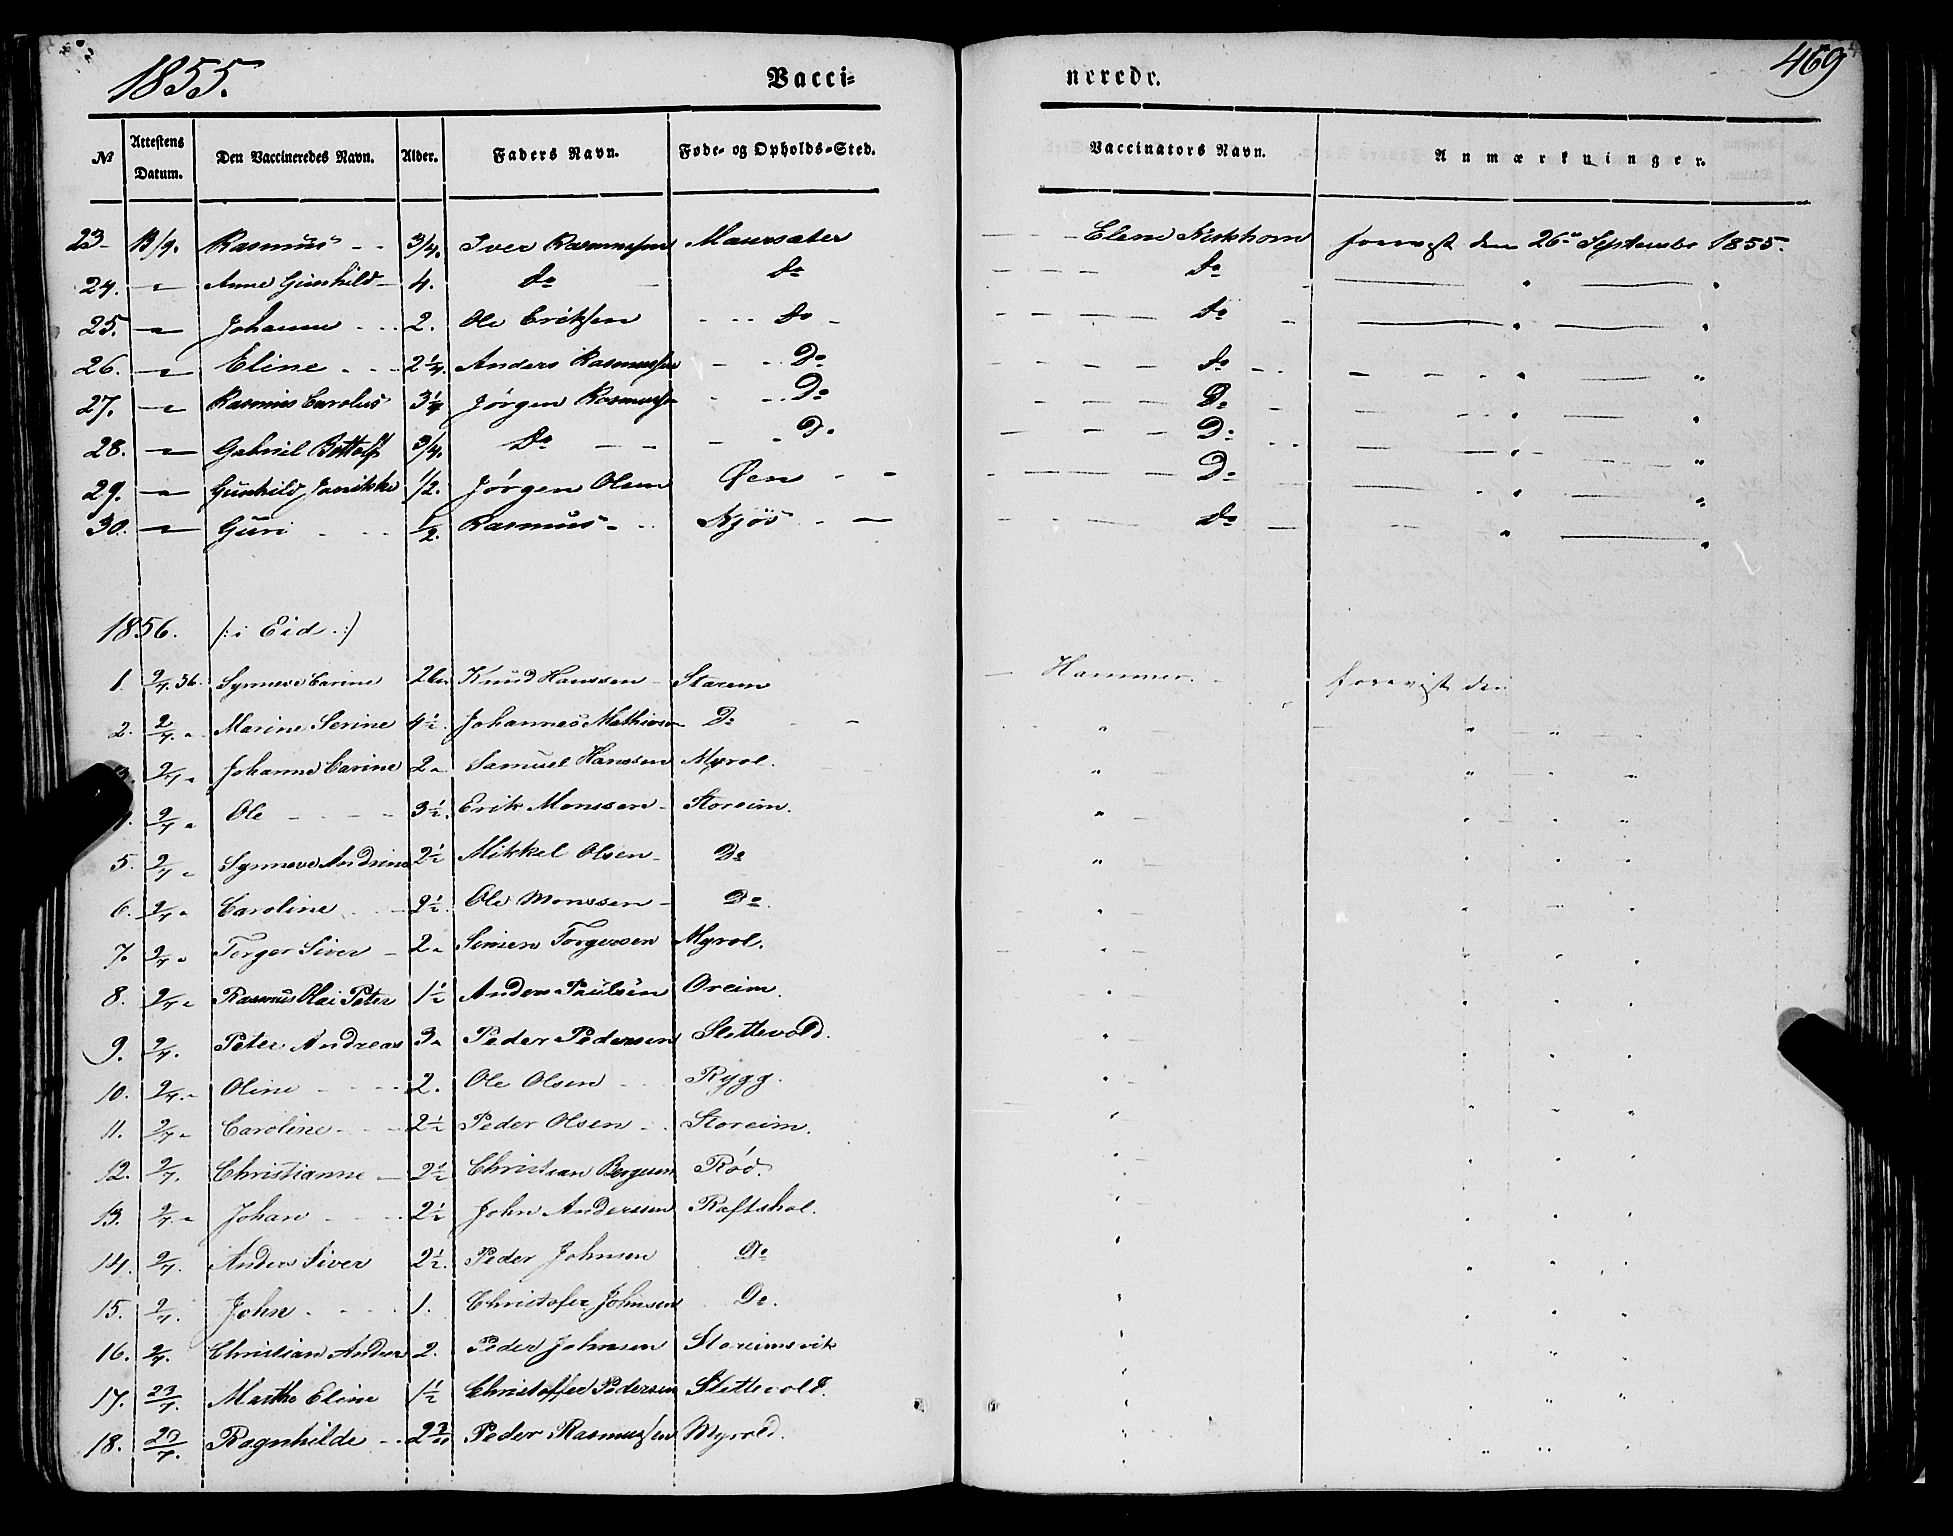 1855. Vacci- nerede. 469
No Attestens Datum. Den Vaccineredes Navn. Alder. Faders Navn. Føde- og Opholds-Sted. Vaccinators Navn. Anmærkninger.
23. 13/9. Rasmus 3/4. Iver Rasmussen Maursæter forevist den 26de September 1855.
24. " Anne Gunhild 4. Do Do Do " "
25. " Johanne 2. Ole Eriksen Do Do " "
26. " Eline 2 1/4. Anders Rasmussen Do Do " "
27. " Rasmus Carolus 3 1/4 Jørgen Rasmussen Do Do " "
28. " Gabriel 3/4. Do Do Do " "
29. " Gunhild Jonikke 1/2. Jørgen Olsen Øen Do " "
30. " Guri 1/2. Rasmus Njøs Do " "
1856. /: i Eid :/
1. 2/7. 56. Synneve Carine Knud Hanssen Starem Hammer. forevist den
2. 2/7. " Marine Serine 4 1/2. Johannes Mathiesen Do " " "
2/7 " Johanne Carine 2 " Samuel Hanssen Myrol. " " " "
2/7 " Ole 3 1/2. Erik Monssen Storeim. " " " "
5. 2/7 " Synneve Andrine 2 1/2 Mikkel Olsen Do " " " "
6. 2/7 " Caroline 2 1/2. Ole Monssen Do " " " "
7. 2/7 " Torger Siver 2 " Simen Torgersen Myrol. " " " "
8. 2/7 " Rasmus Olai Peter 1 1/2 Anders Paulsen Oreim. " " " "
9. 2/7. Peter Andreas 3 " Peder Pedersen Slettevold. " " " "
10. 2/7. " Oline 2. Ole Olsen Rygg. " " " "
11. 2/7 " Caroline 2 1/2 Peder Olsen Storeim. " " " "
12. 2/7. Christianne 2 1/2 Christian Bergesen Rød. " " " "
13. 2/7 " Johan 2 1/2 John Anderssen Raftshol. " " " "
14. 2/7. Anders Siver 2 1/2. Peder Johnsen Do " " " "
15. 2/7. John 1. Christofer Johnsen Do. " " " "
16. 2/7. Christian Andrea 2. Peder Johnsen Storeimsvik " " " "
17. 23/7. Marthe Eline 1 1/2 Christoffer Pedersen Slettevold. " " " "
18. Ragnhilde Peder Rasmussen Myrold. " " " "